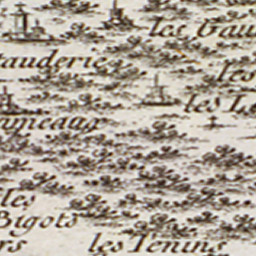 les Gau
auderie
les
les Le
les
Bigots
rs
les Tenins